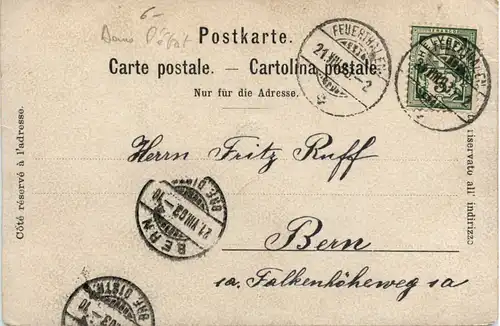 6.-
Postkarte.
Carte postale. — Cartolina postale.
Nur für die Adresse.
Côté réservé à l'adresse.
riservato all' indirizzo
FEUERTHALEN
21.VII.03.-2
Herrn Fritz Ruff
BERN
21.VII.03.-10
BRF. DISTR.
Bern
1a. Falkenhöheweg 1a
BRF. DISTR.